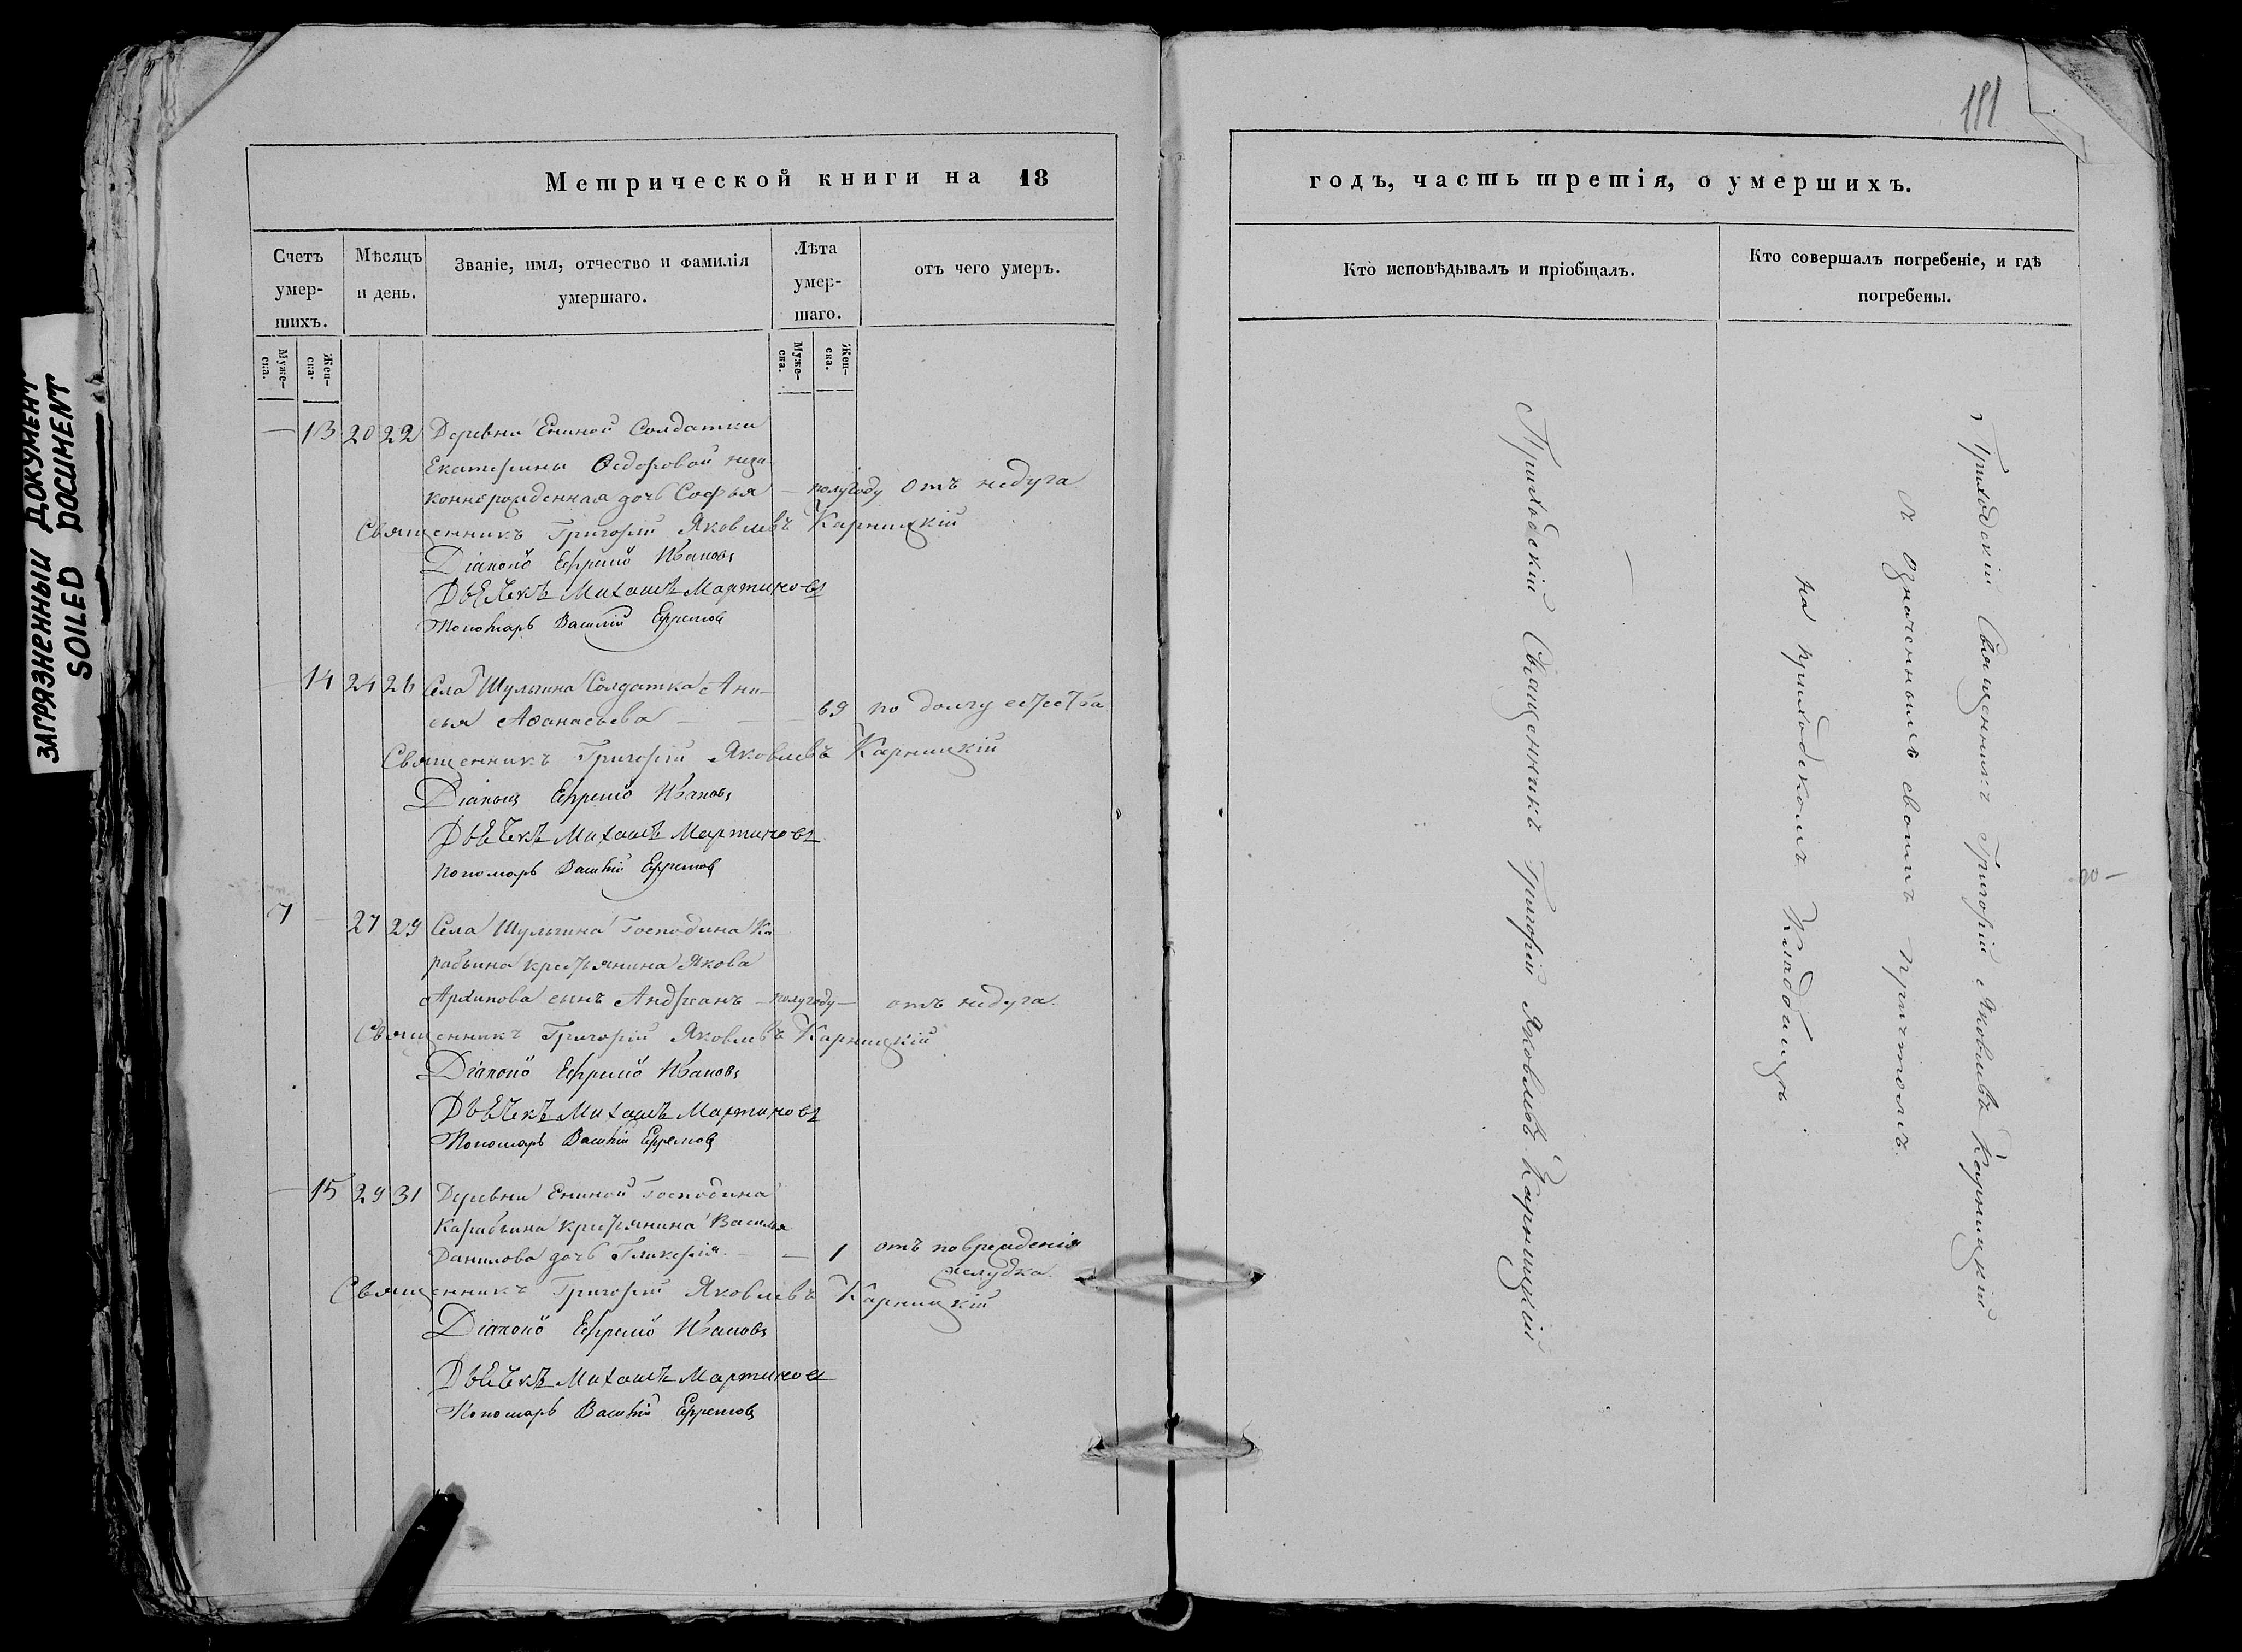 ЗАГРЯЗНЕННЫЙ ДОКУМЕНТ
SOILED DOCUMENT
Метрической книги на 18
Счетъ умер-шихъ.
Мѣсяцъ и день.
Званіе, имя, отчество и фамилія
умершаго.
Лѣта умер-шаго.
отъ чего умеръ.
Муже-ска.
Жен-ска.
Муже-ска.
Жен-ска.
— 13 20 22 Деревни Ениной Солдатки
Екатерины Ѳедоровой неза-
коннорожденная дочь Софья — полугоду отъ недуга
Священникъ Григорій Яковлевъ Карницкій
Діаконъ Ефремъ Ивановъ
Дьячекъ Михаилъ Мартиновъ
Пономарь Василій Ефремовъ
— 14 24 26 Села Шульгина Солдатка Ани-
сья Аѳанасьева — — 69 по долгу естества
Священникъ Григорій Яковлевъ Карницкій
Діаконъ Ефремъ Ивановъ
Дьячекъ Михаилъ Мартиновъ
Пономарь Василій Ефремовъ
7 — 27 29 Села Шульгина Господина Ка-
рабьина крестьянина Якова
Архипова сынъ Андрианъ — полугоду — отъ недуга.
Священникъ Григорій Яковлевъ Карницкій
Діаконъ Ефремъ Ивановъ
Дьячекъ Михаилъ Мартиновъ
Пономарь Василій Ефремовъ
— 15 29 31 Деревни Ениной Господина
Карабьина крестьянина Василья
Данилова дочь Гликерія. — — 1 отъ поврежденія
желудка.
Священникъ Григорій Яковлевъ Карницкій
Діаконъ Ефремъ Ивановъ
Дьячекъ Михаилъ Мартиновъ
Пономарь Василій Ефремовъ
181
годъ, часть третія, о умершихъ.
Кто исповѣдывалъ и пріобщалъ.
Кто совершалъ погребеніе, и гдѣ
погребены.
Приходскій Священникъ Григорій Яковлевъ Карницкій
Приходскій Священникъ Григорій Яковлевъ Карницкій
съ означеннымъ своимъ причтомъ.
на приходскомъ Кладбищѣ.